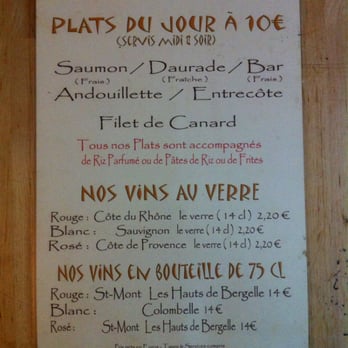 PLATS DU JOUR À 10€
(SERVIS MIDI & SOIR)
Saumon / Daurade / Bar
( Frais ) ( Fraîche ) ( Frais )
Andouillette / Entrecôte
Filet de Canard
Tous nos Plats sont accompagnés
de Riz Parfumé ou de Pâtes de Riz ou de Frites
NOS VINS AU VERRE
Rouge : Côte du Rhône le verre ( 14 cl ) 2,20 €
Blanc : Sauvignon le verre ( 14 cl ) 2,20 €
Rosé : Côte de Provence le verre ( 14 cl ) 2,20 €
NOS VINS EN BOUTEILLE DE 75 CL
Rouge : St-Mont Les Hauts de Bergelle 14 €
Blanc : Colombelle 14 €
Rosé : St-Mont Les Hauts de Bergelle 14€